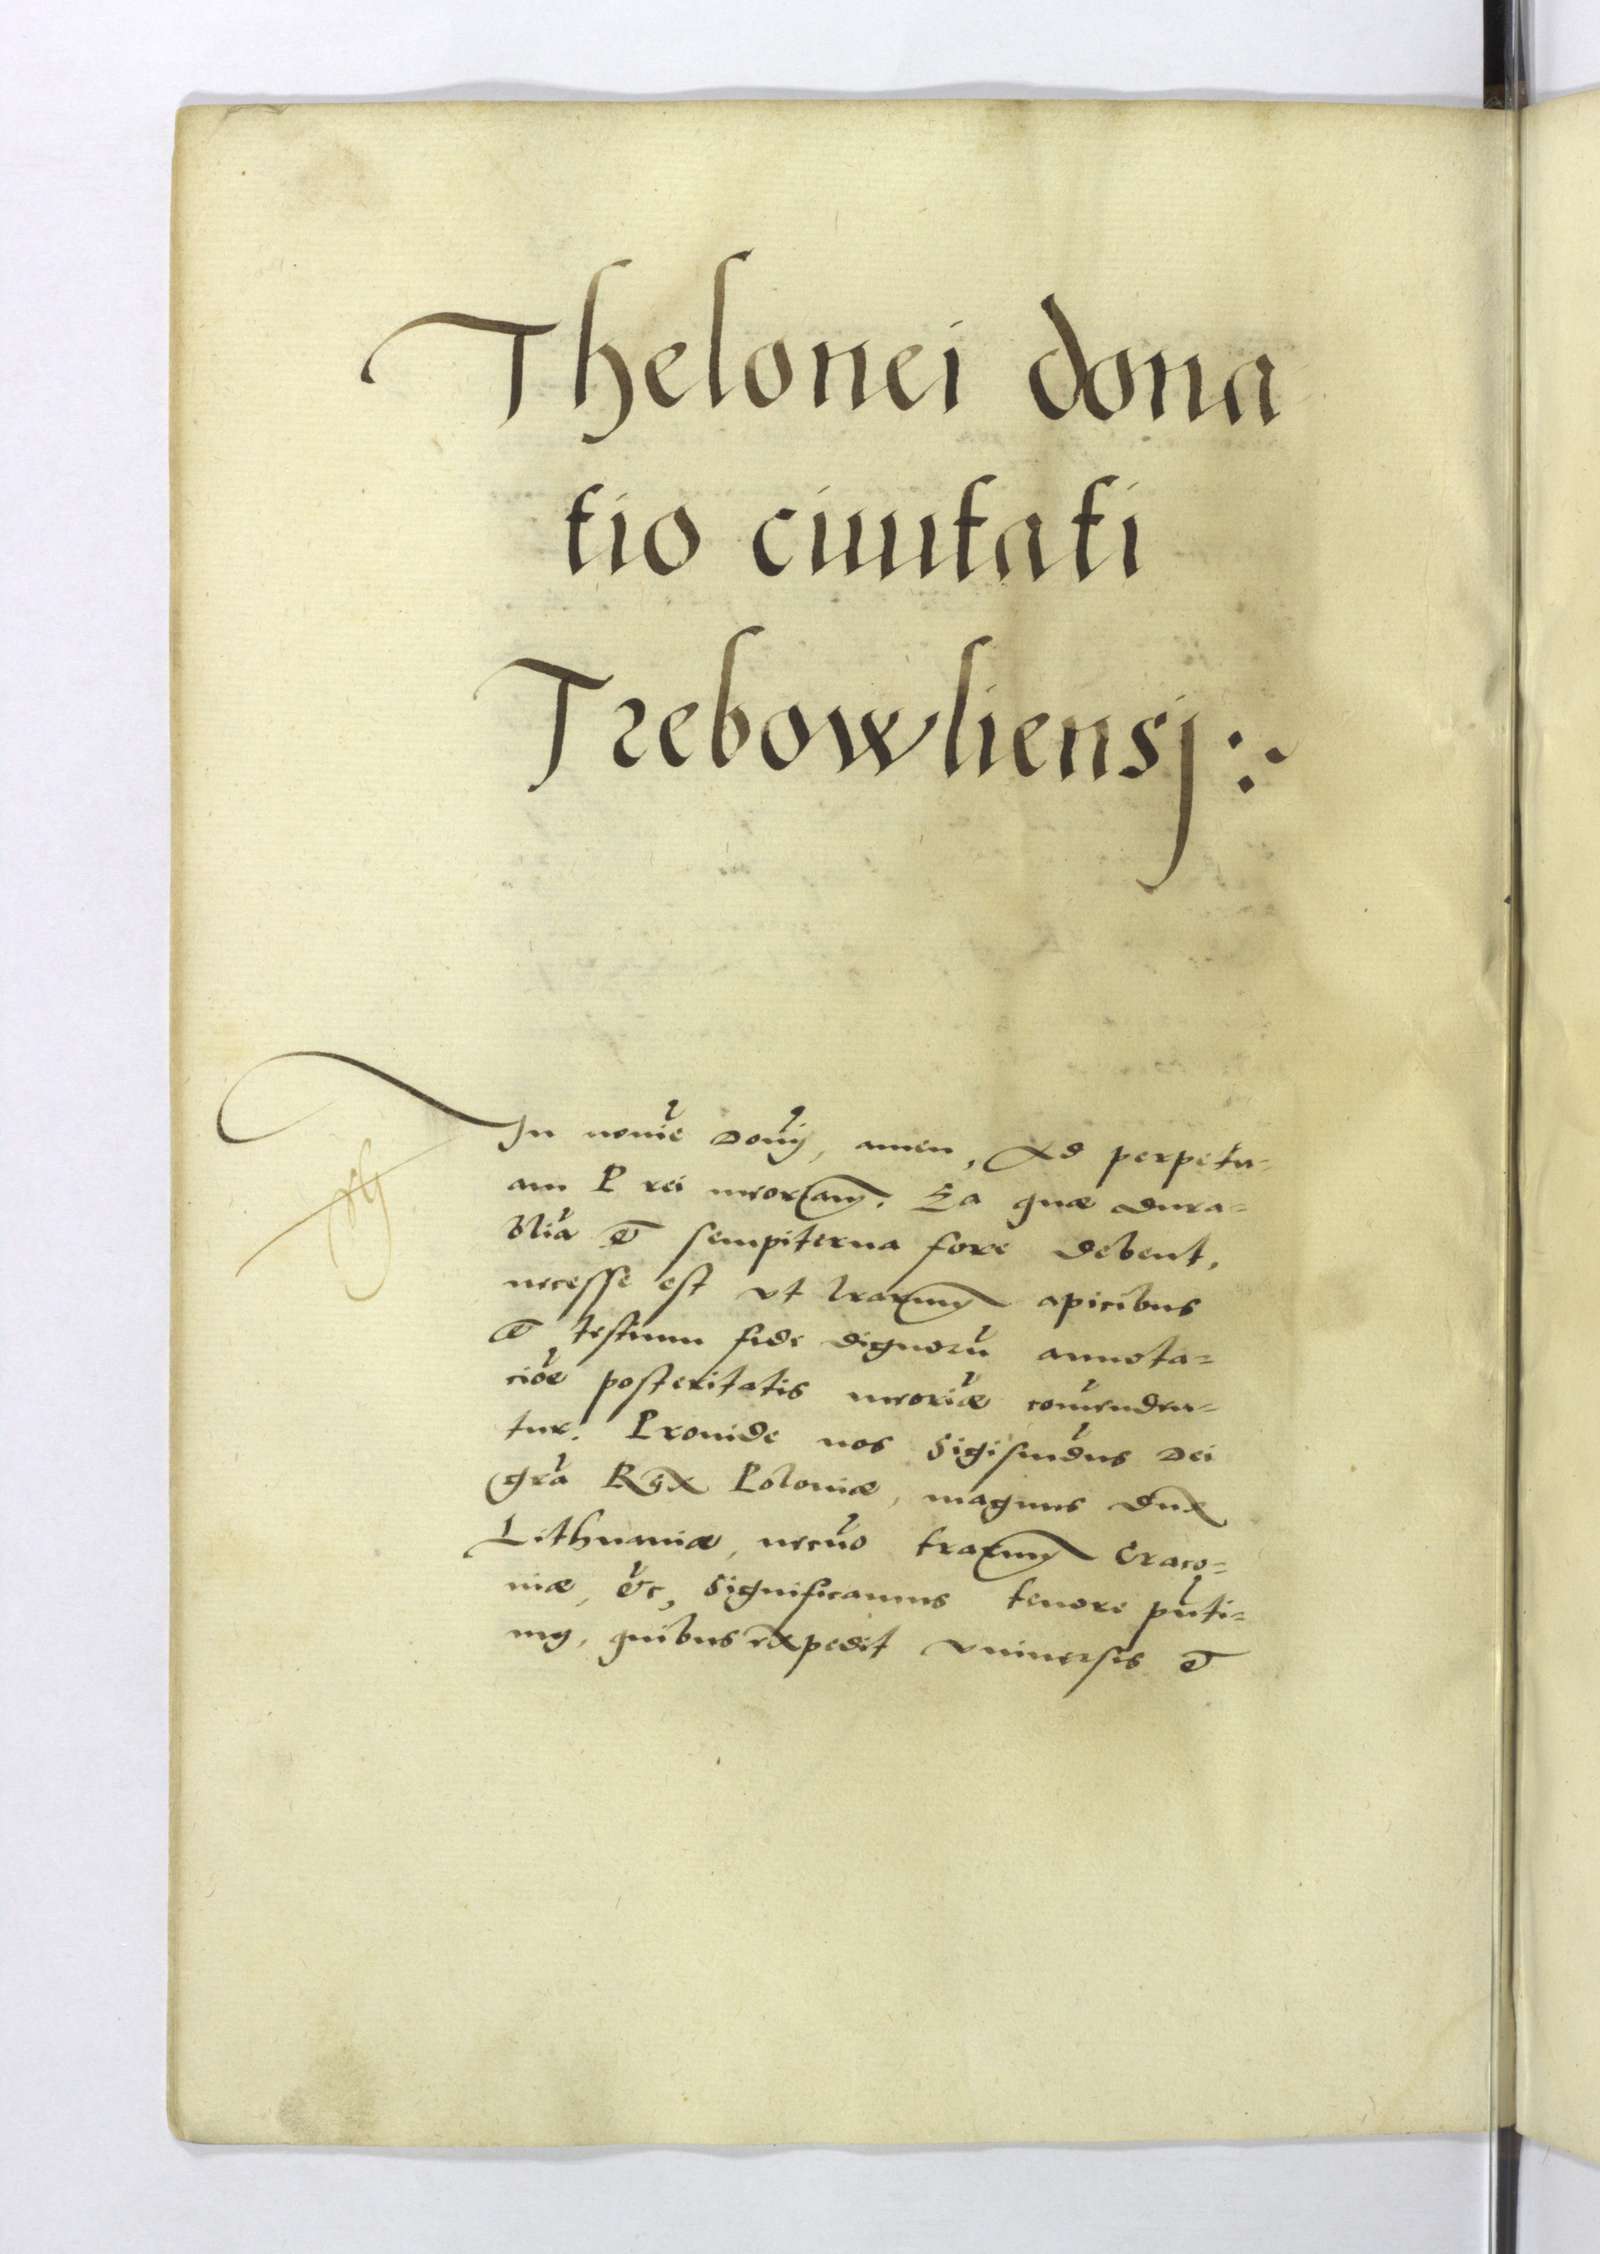 Thelonei dona
tio ciuitati
Trebowliensj
In noie Domj, amen, Ad perpetu=
am P rei meoriam. Ea quæ dura=
blia et sempiterna fore debent,
necesse est vt lrarum apicibus
et testium fide dignoru annota=
cioe posteritatis meoriæ comendēn=
tur. Proinde nos Sigismdus Dei
gra Rex Poloniæ, magnus Dux
Lithuaniæ, necno trarum Craco=
niæ, etc, Significamus tenore pnti=
um, quibus expedit vniuersis et